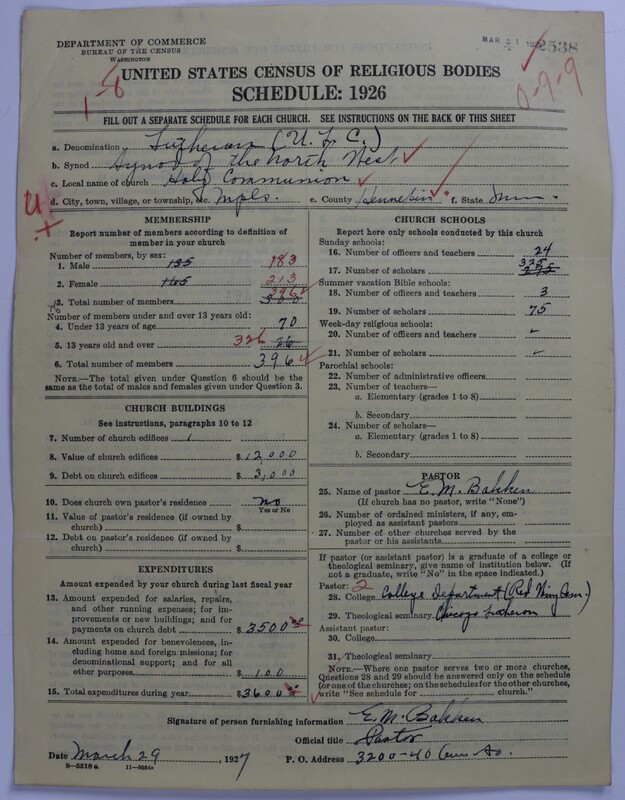 DEPARTMENT OF COMMERCE
BUREAU OF THE CENSUS
WASHINGTON
MAR 31
2538
UNITED STATES CENSUS OF RELIGIOUS BODIES
SCHEDULE: 1926
1-8
0-9-9
FILL OUT A SEPARATE SCHEDULE FOR EACH CHURCH. SEE INSTRUCTIONS ON THE BACK OF THIS SHEET
a. Denomination Lutheran (U.L.C.)
b. Synod Synod of the North West
c. Local name of church Holy Communion
d. City, town, village, or township, &c. Mpls. e. County Hennepin f. State Minn.
MEMBERSHIP
Report number of members according to definition of
member in your church
Number of members, by sex:
1. Male 135 183
2. Female 165 213
3. Total number of members 396
Number of members under and over 13 years old:
4. Under 13 years of age 70
5. 13 years old and over 326 26
6. Total number of members 396
NOTE.—The total given under Question 6 should be
the same as the total of males and females given under Question 3.
CHURCH BUILDINGS
See instructions, paragraphs 10 to 12
7. Number of church edifices 1
8. Value of church edifices $12,000
9. Debt on church edifices $3,000
10. Does church own pastor's residence no
Yes or No
11. Value of pastor's residence (if owned by
church) $
12. Debt on pastor's residence (if owned by
church) $
EXPENDITURES
Amount expended by your church during last fiscal year
13. Amount expended for salaries, repairs,
and other running expenses; for im-
provements or new buildings; and for
payments on church debt $3500
14. Amount expended for benevolences,
including home and foreign missions; for
denominational support; and for all
other purposes $100
15. Total expenditures during year $3600
CHURCH SCHOOLS
Report here only schools conducted by this church
Sunday schools:
16. Number of officers and teachers 24
17. Number of scholars 325
Summer vacation Bible schools:
18. Number of officers and teachers 3
19. Number of scholars 75
Week-day religious schools:
20. Number of officers and teachers -
21. Number of scholars -
Parochial schools:
22. Number of administrative officers
23. Number of teachers—
a. Elementary (grades 1 to 8)
b. Secondary
24. Number of scholars—
a. Elementary (grades 1 to 8)
b. Secondary
PASTOR
25. Name of pastor E. M. Bakken
(If church has no pastor, write "None")
26. Number of ordained ministers, if any, em-
ployed as assistant pastors
27. Number of other churches served by the
pastor or his assistants
If pastor (or assistant pastor) is a graduate of a college or
theological seminary, give name of institution below. (If
not a graduate, write "No" in the space indicated.)
Pastor: 2
28. College College Department (Red Wing Sem.)
29. Theological seminary Chicago Lutheran
Assistant pastor:
30. College
31. Theological seminary
NOTE.—Where one pastor serves two or more churches,
Questions 28 and 29 should be answered only on the schedule
for one of the churches; on the schedules for the other churches,
write "See schedule for church."
Signature of person furnishing information E. M. Bakken
Official title Pastor
Date March 29, 1927 P. O. Address 3200-40 Ave So.
8—5518a 11—9084a